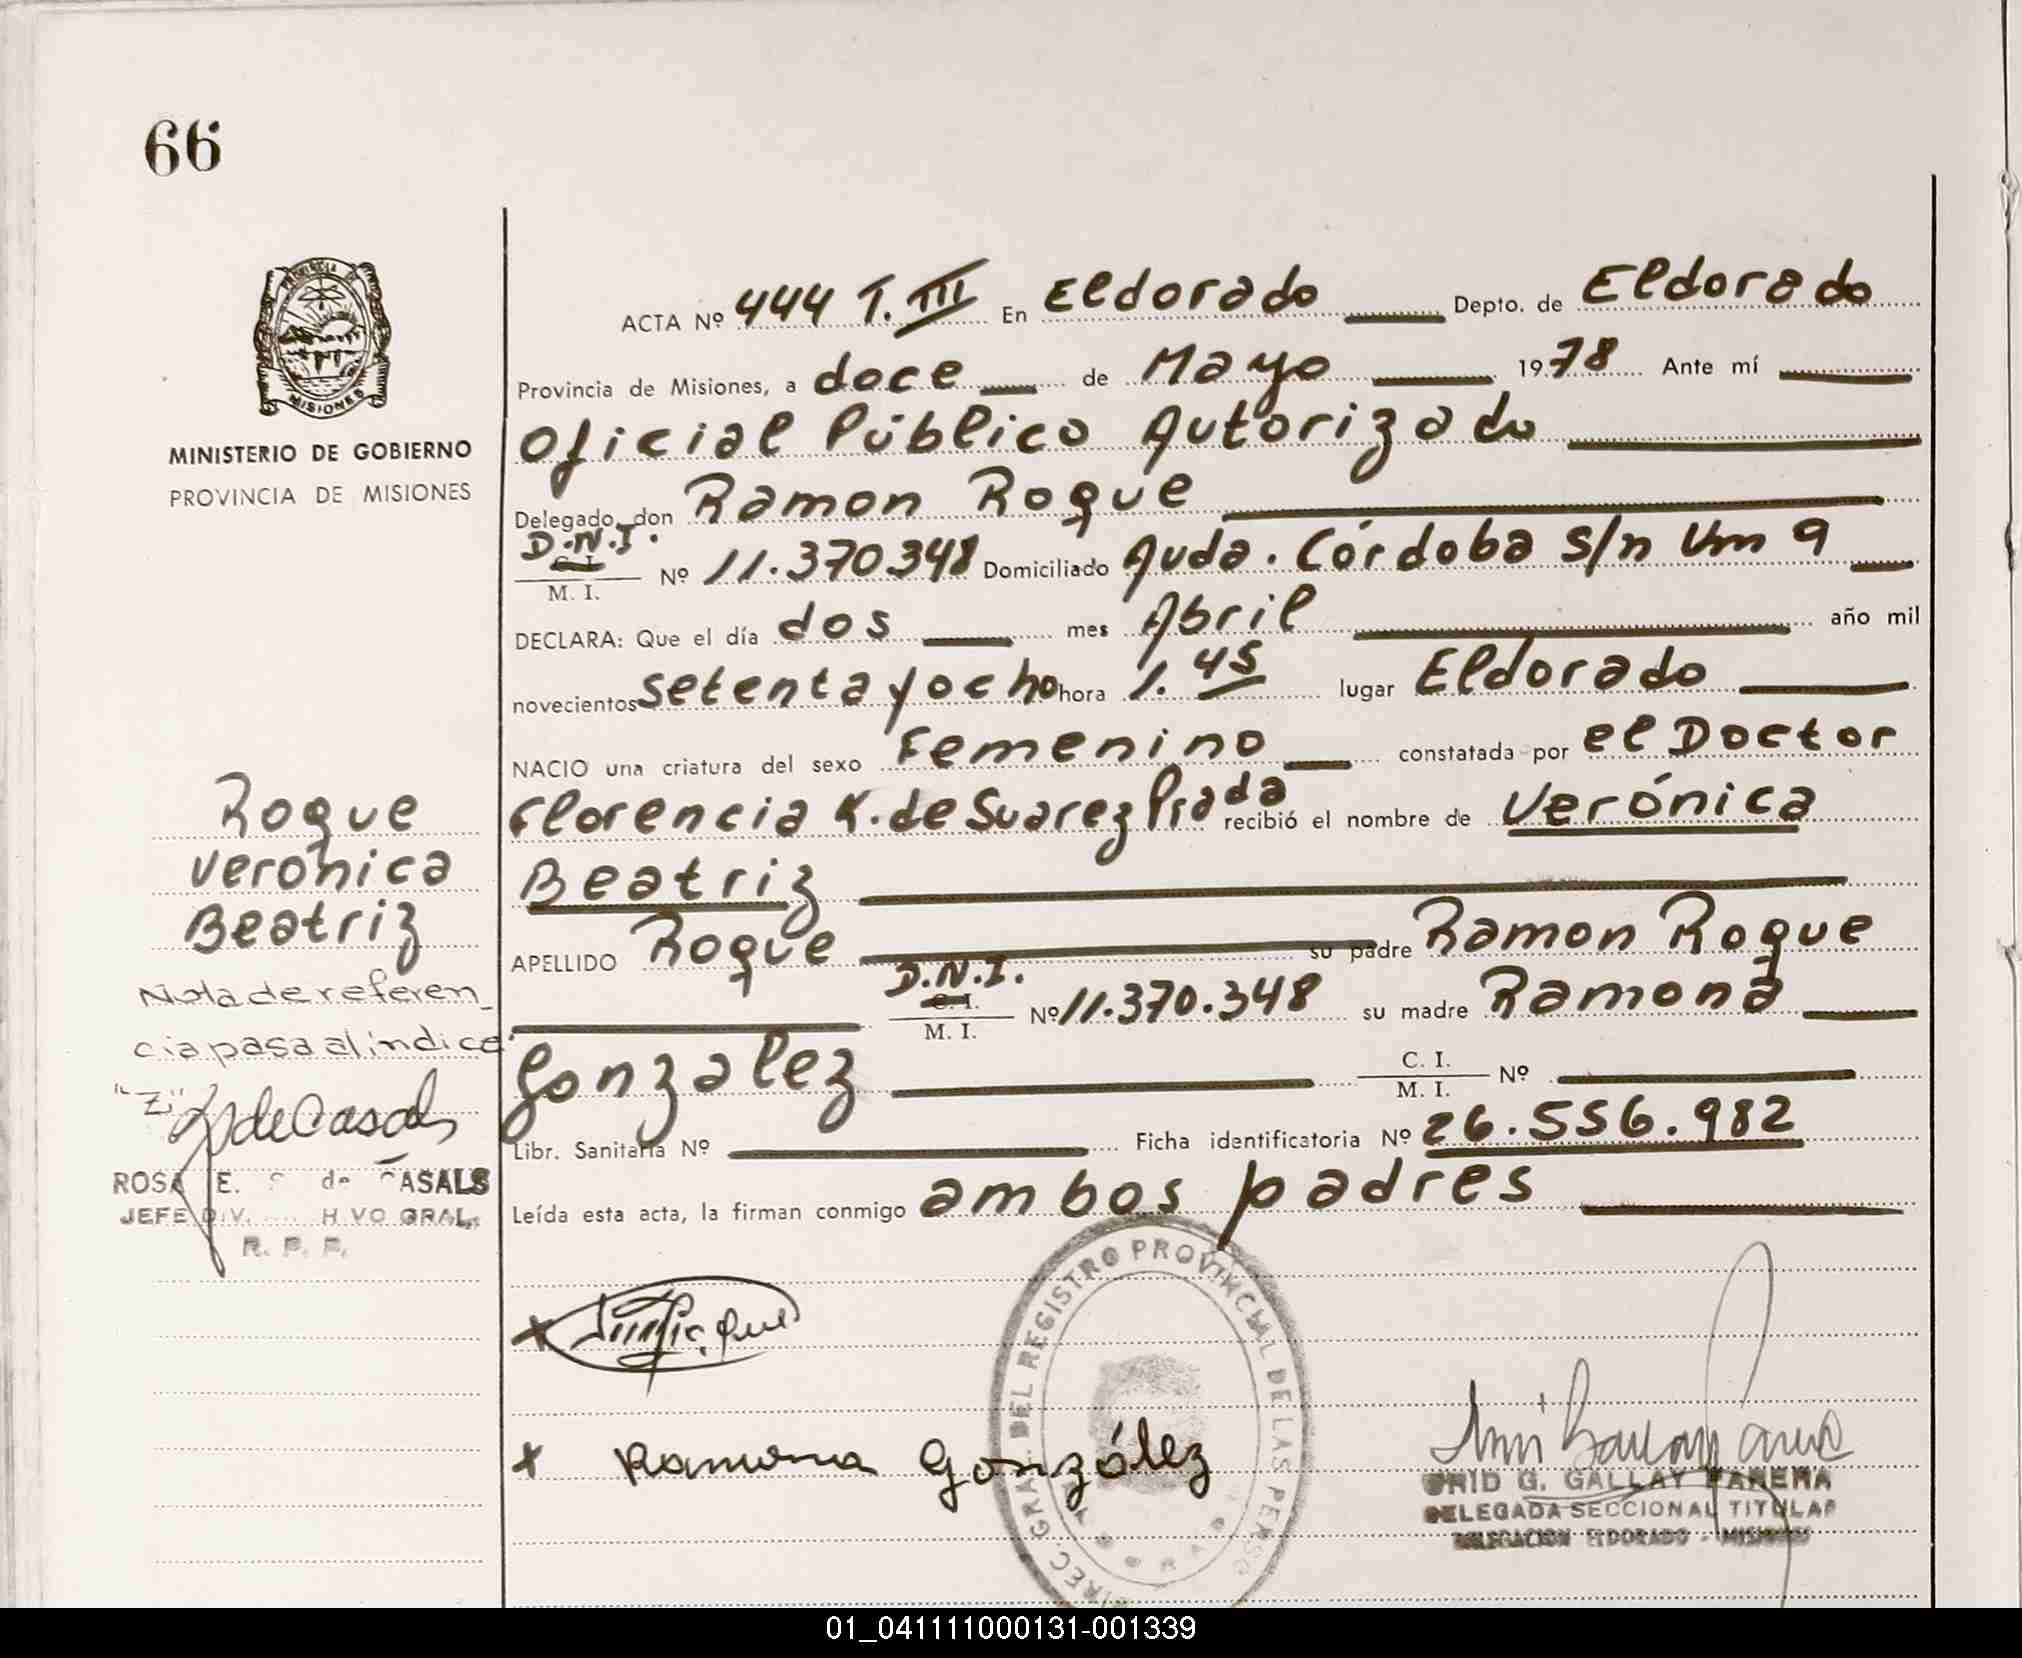 66
PROVINCIA DE
MISIONES
MINISTERIO DE GOBIERNO
PROVINCIA DE MISIONES
ACTA Nº 444 T. III En Eldorado Depto. de Eldorado
Provincia de Misiones, a doce de Mayo 1978 Ante mí
Oficial Público Autorizado
Delegado don Ramon Roque
D.N.I.
C. I.
M. I.
Nº 11.370.348 Domiciliado Avda. Córdoba s/n Km 9
DECLARA: Que el día dos mes Abril año mil
novecientos setenta y ocho hora 1.45 lugar Eldorado
NACIO una criatura del sexo Femenino constatada por el Doctor
Florencia K. de Suarez Prada recibió el nombre de Verónica
Beatriz
APELLIDO Roque su padre Ramon Roque
D.N.I.
C. I.
M. I.
Nº 11.370.348 su madre Ramona
Gonzalez
C. I.
M. I.
Nº
Libr. Sanitaria Nº Ficha identificatoria Nº 26.556.982
Leída esta acta, la firman conmigo ambos padres
Roque
Verónica
Beatriz
Nota de referen_
cia pasa al índice
"Z"
de Casals
ROSA E. de CASALS
JEFE DIV. GRAL.
R. P. P.
x
x Ramona González
DIREC. GRAL. DEL REGISTRO PROVINCIAL DE LAS PERSO
G. GALLAY PARERA
DELEGADA SECCIONAL TITULAR
DELEGACION ELDORADO - MISIONES
01_041111000131-001339